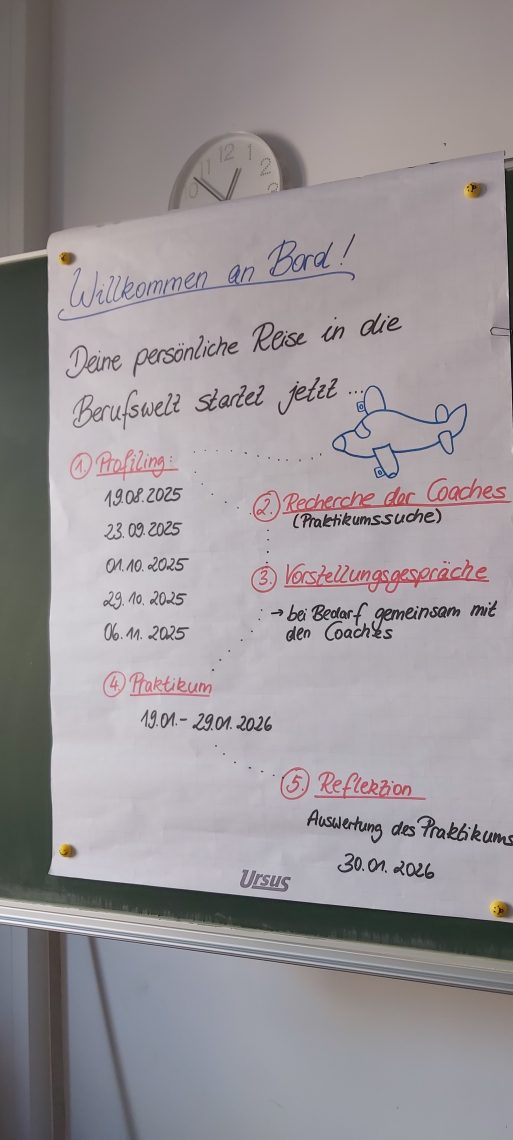 11 12 1
2
Willkommen an Bord!
Deine persönliche Reise in die
Berufswelt startet jetzt ...
① Profiling:
19.08.2025
23.09.2025
01.10.2025
29.10.2025
06.11.2025
②. Recherche der Coaches
(Praktikumssuche)
③. Vorstellungsgespräche
→ bei Bedarf gemeinsam mit
den Coaches
④ Praktikum
19.01.- 29.01.2026
⑤. Reflektion
Auswertung des Praktikums
30.01.2026
Ursus